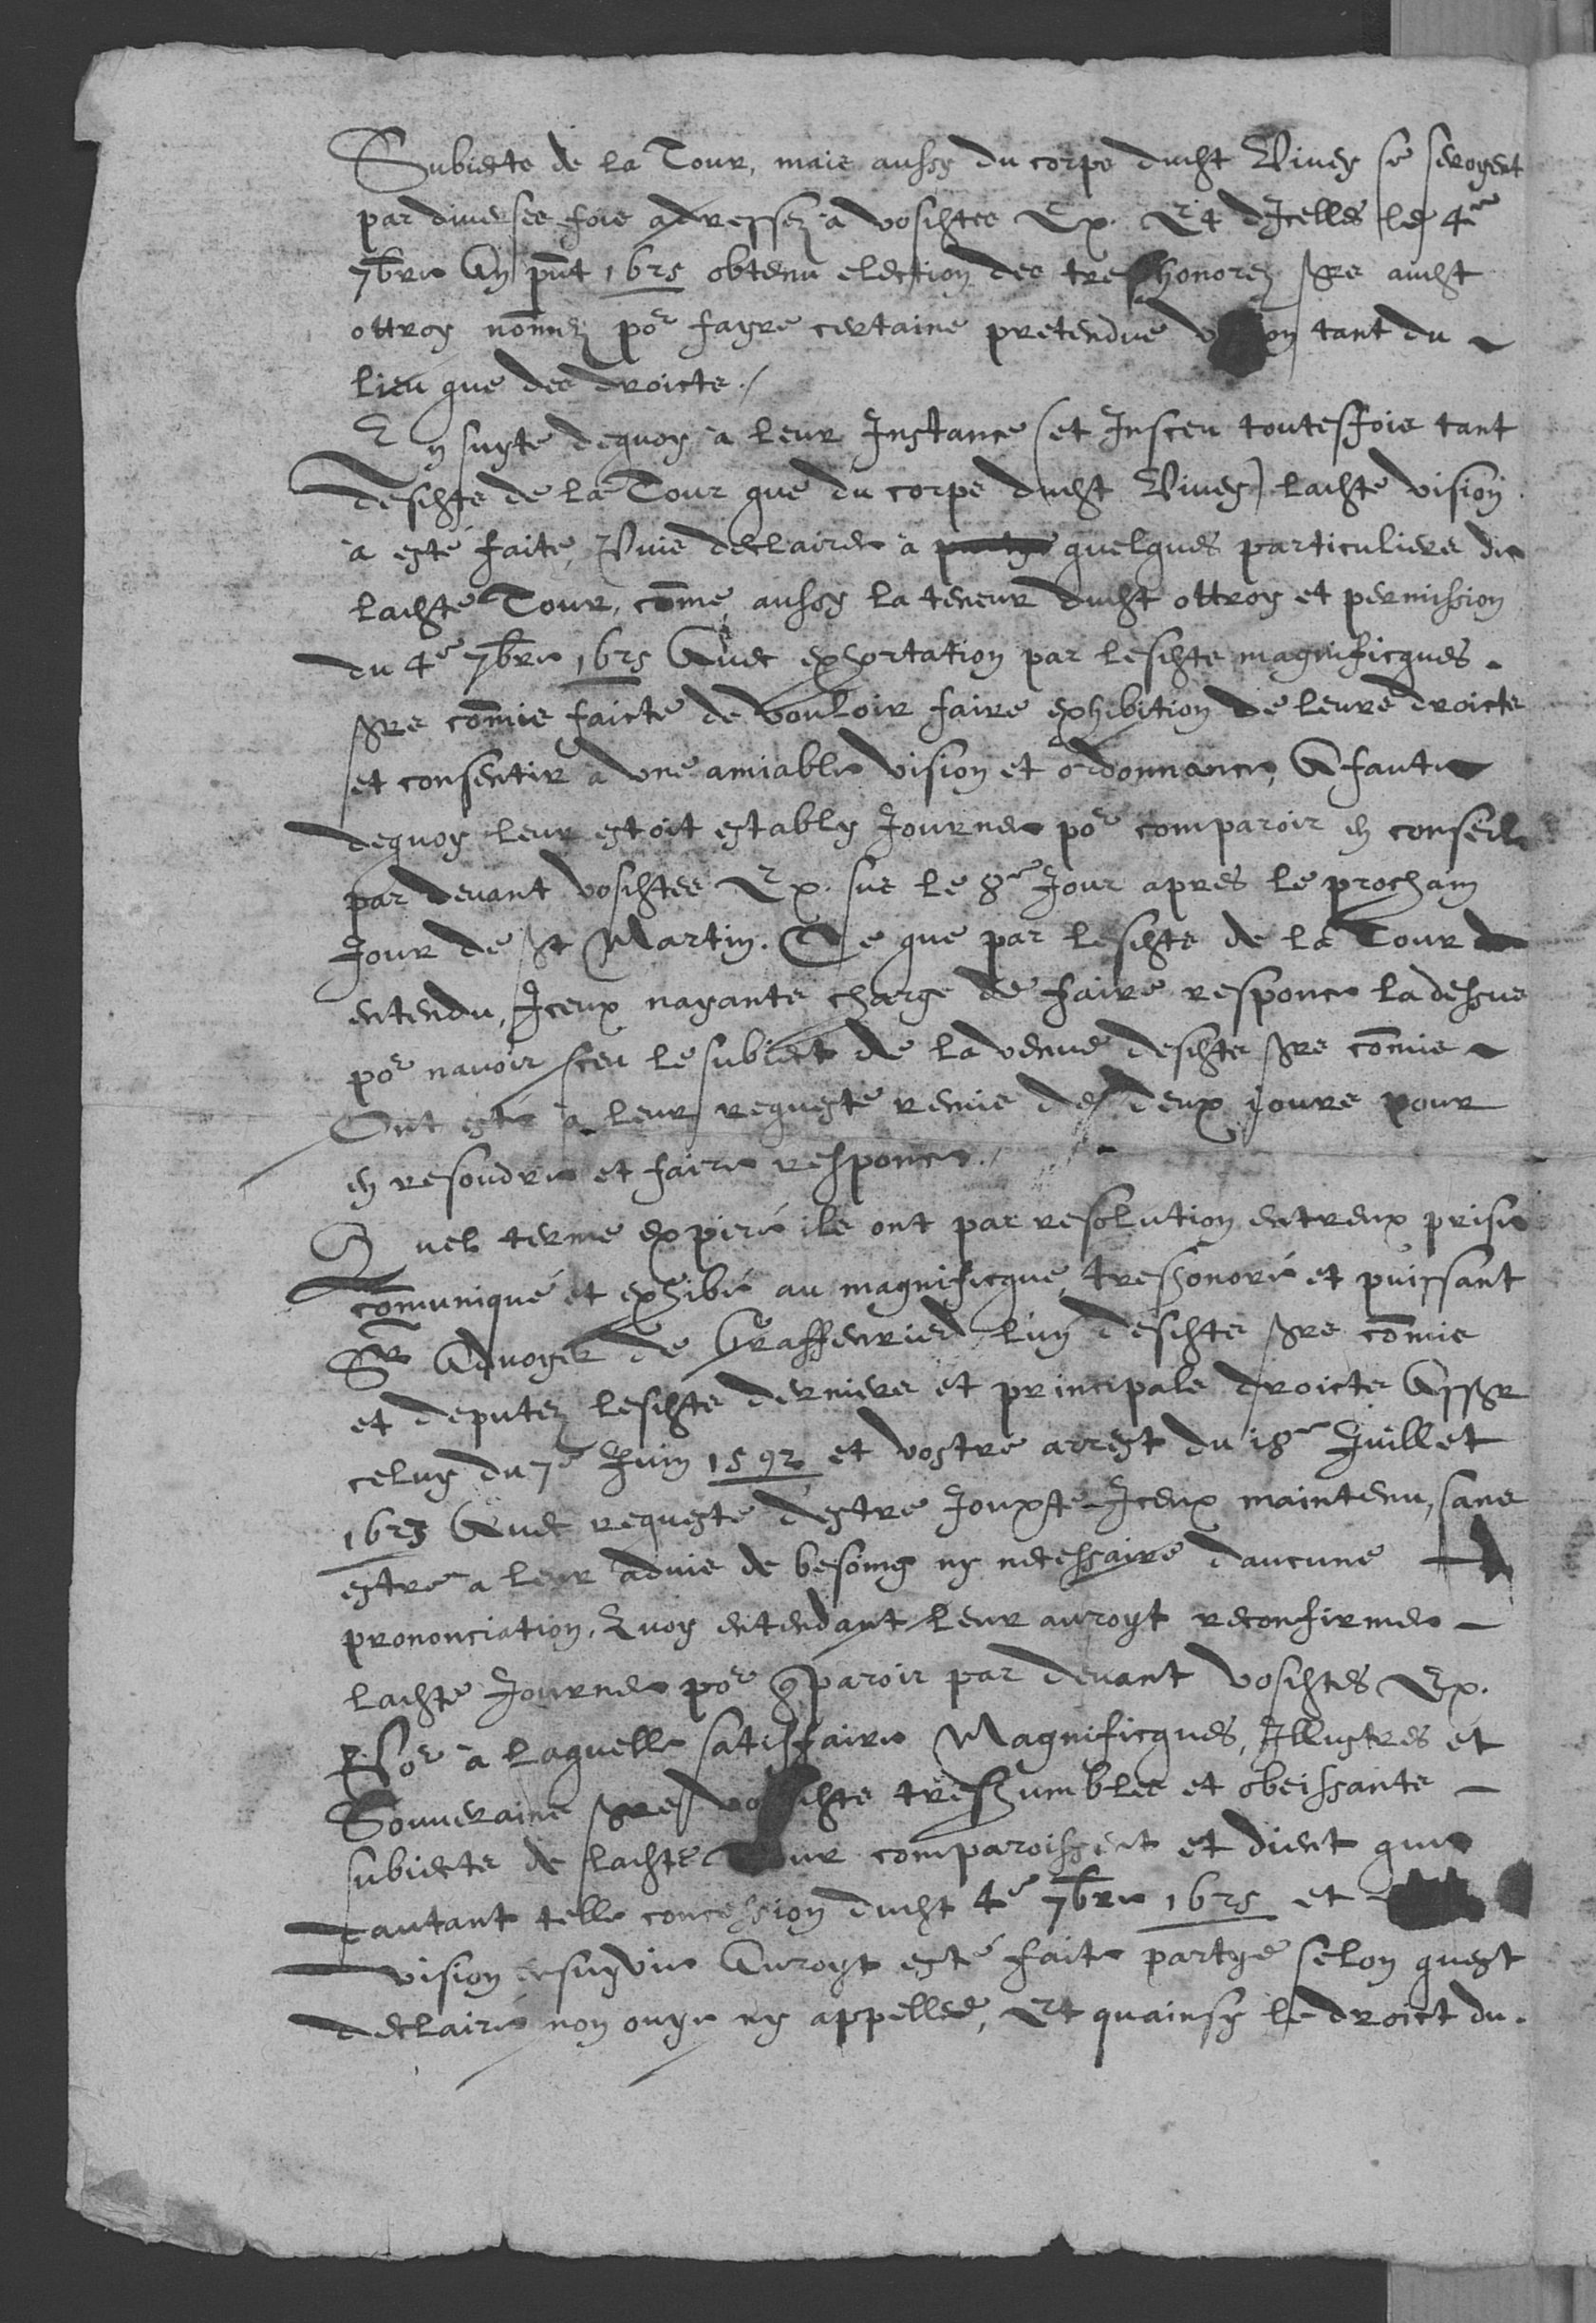 Subiects de la Tour, mais aussy du corps dudit Viuey se seroyent
par diverses fois adressez à vosdites Ex. Et d'Icelles le 4e
7bre An pnt 1625 obtenu election des treshonorez Srs audit
ottroy nommez por fayre certaine pretendue on tant du
lieu que des droicts./
En suyte dequoy à leur Instance (et Insceu toutesfois tant
desdits de la Tour que du corps dudit Viuey) ladite vision
à esté faite, Puis declairée à quelques particuliers de
ladite Tour, come aussy la teneur dudit ottroy et permission
du 4e 7bre 1625 Auec exhortation par lesdits magnificques
Srs comis faicte de vouloir faire exhibition de leurs droicts
et consentir à vne amiable vision et ordonnance, A faute
dequoy leur estoit estably Journée por comparoir en conseil
par deuant vosdites Ex. sus le 8e Jour apres le prochain
Jour de St Martin. Ce que par lesdits de la Tour
entendu, Iceux nayants charge de faire responce la dessus
por nauoir sceu le subiect de la venue desdits Srs comis
Ont esté à leur requeste remis de deux jours pour
en resoudre et faire responce./
Quel terme expiré ils ont par resolution entreux prise
comuniqué et exhibé au magnificque, treshonoré et puissant
Sr Aduoyer de Graffenried luy desdits Srs comis
et deputez lesdits derniers et principals droicts Assr
celuy du 7e Juin 1592 et vostre arrest du 18e Juillet
1623 Auec requeste destre Jouxte Iceux maintenu, sans
estre à leur aduis de besoing ny necessaire daucune
prononciation, Quoy entendant leur auroyt reconfirmée
ladite Journée por comparoir par deuant vosdites Ex.
Por à laquelle satisfaire Magnificques, Illustres et
Souuerains Srs vosdits treshumbles et obeissants
subiects de ladite Tour comparoissent et dient que
dautant telle concession dudit 4e 7bre 1625 et
vision ensuyvie Auroyt esté faite partye selon quest
declairé non ouye ny appellée, Et quainsy le droict du